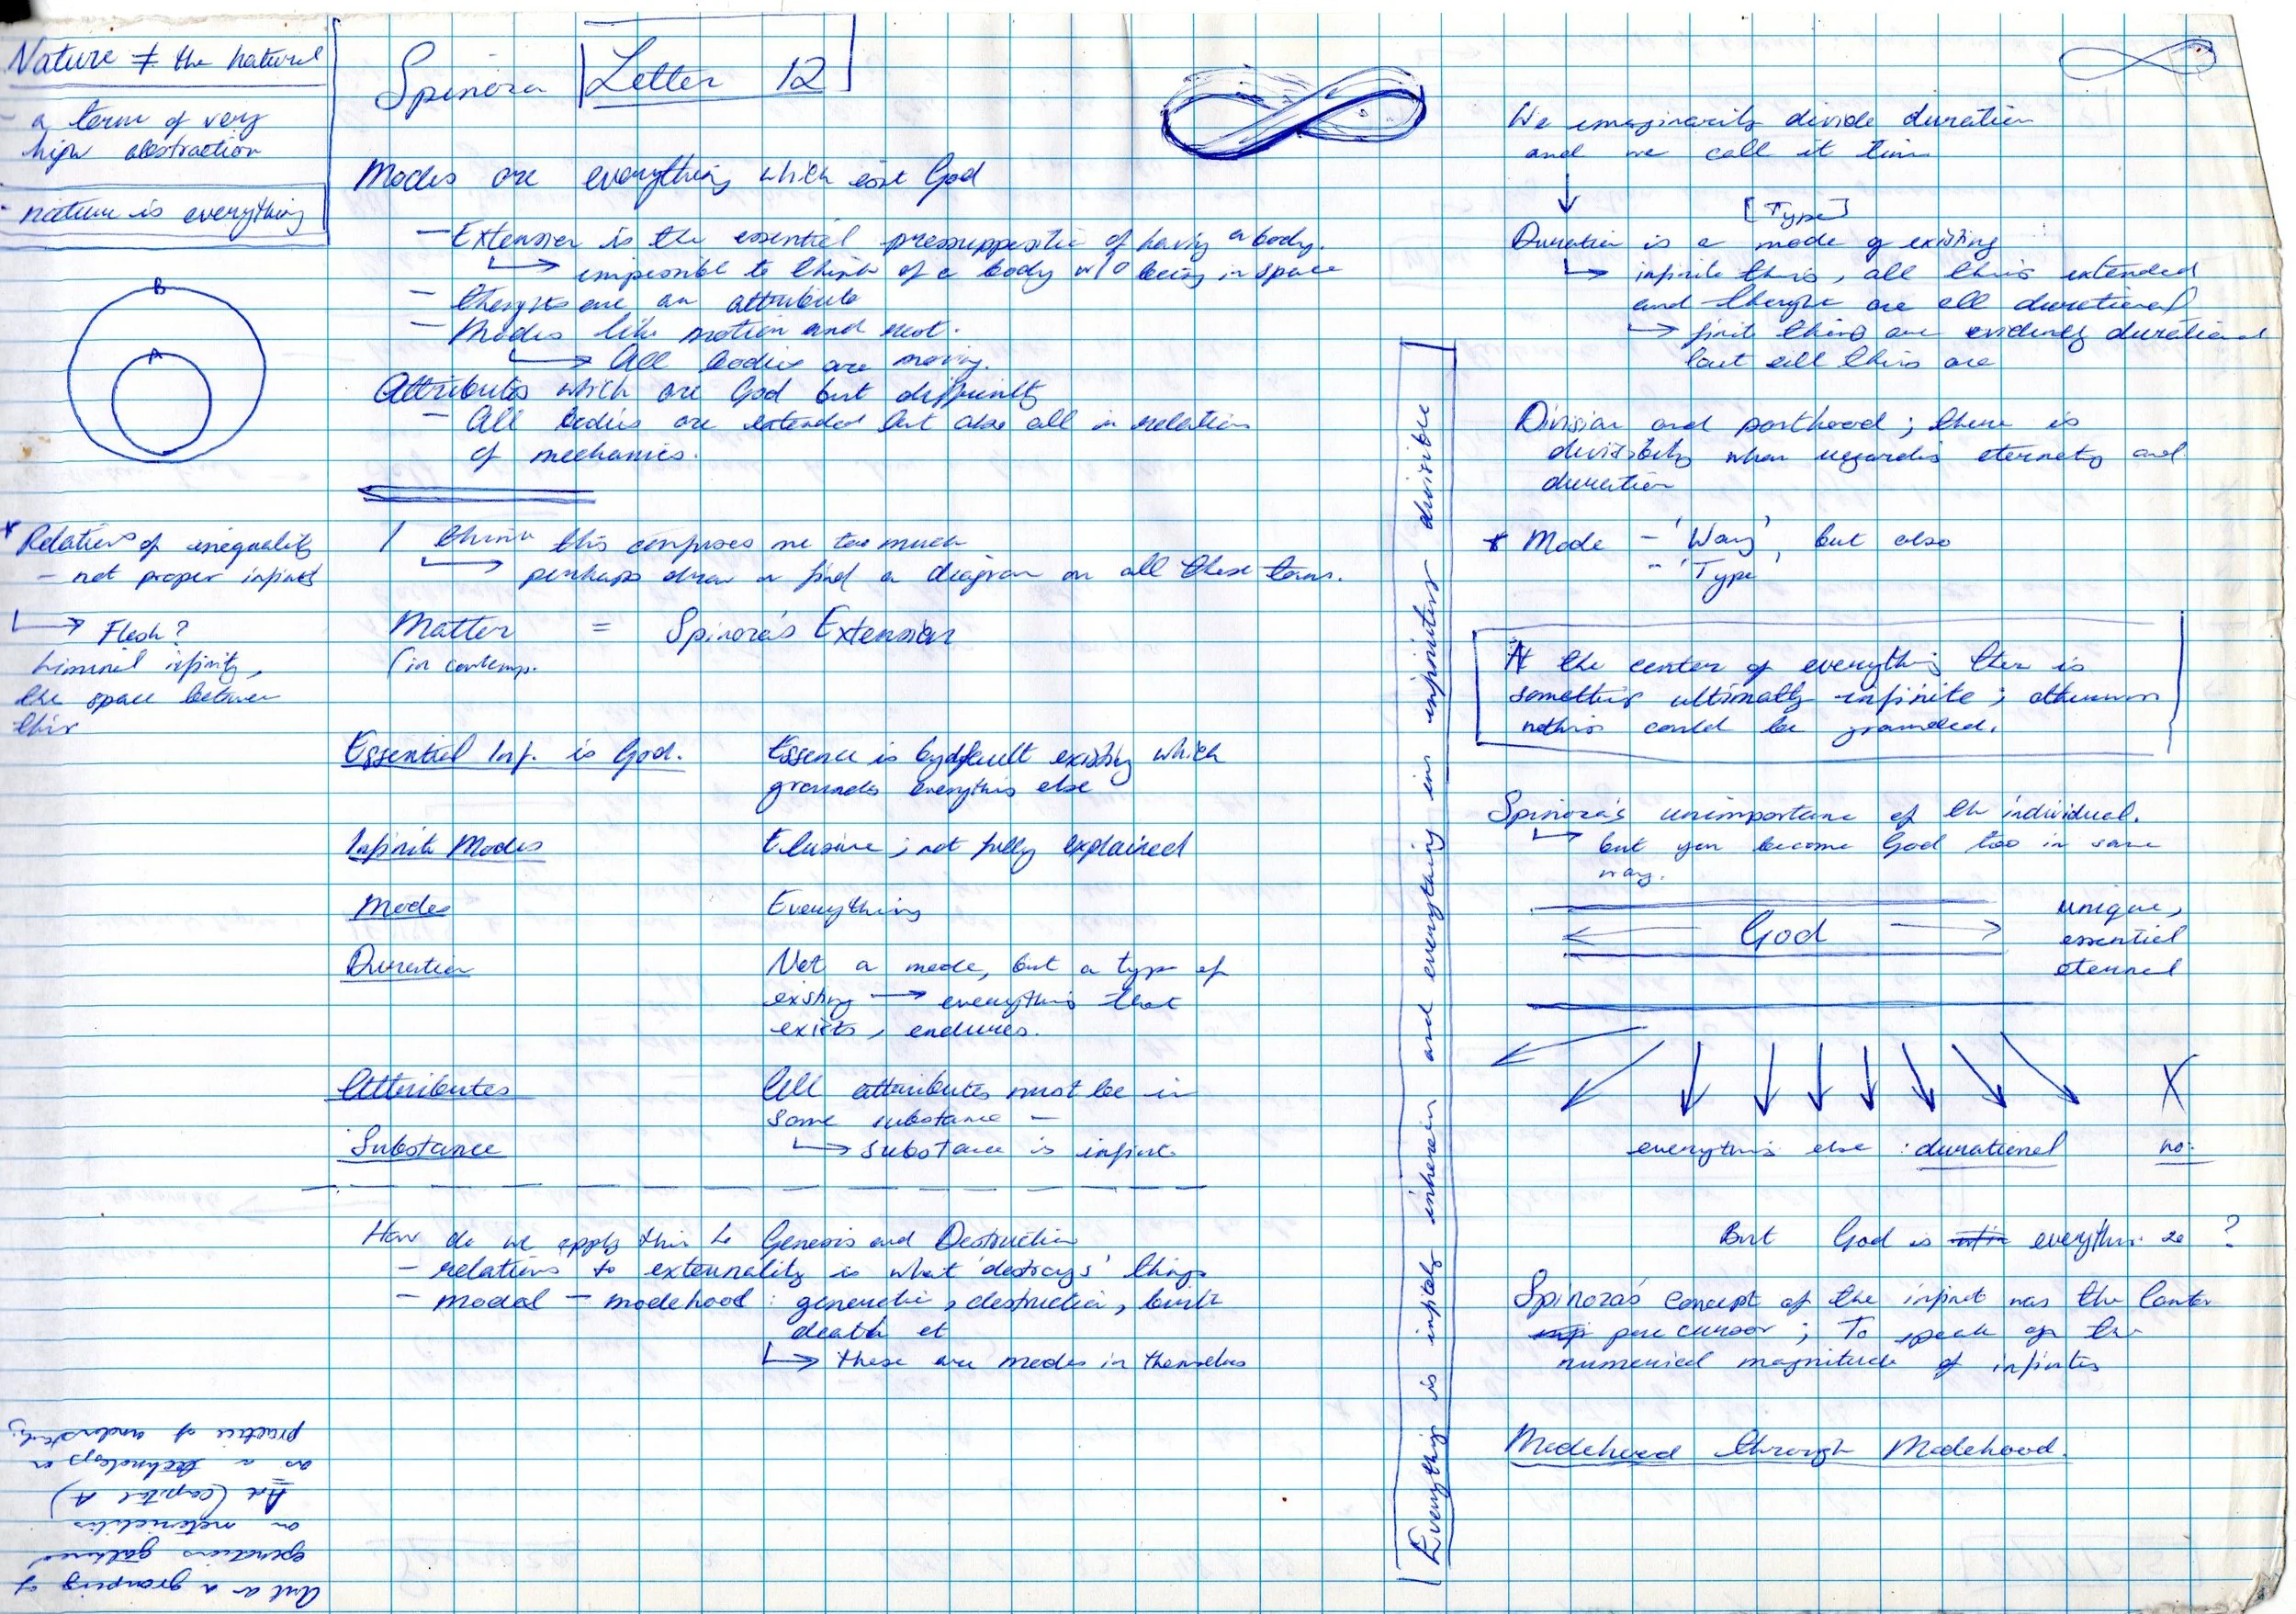 Nature ≠ the natural
- a term of very
high abstraction
- nature is everything
B
A
* Relations of inequality
- not proper infinites
↳ Flesh?
liminal infinity,
the space between
Art as a grouping of
operations gathered
on materialities
Art (capital A)
as a technology or
practice of
Spinoza Letter 12
Modes are everything which God
- Extension is the essential of having a body.
↳ impossible to think of a body w/o being in space
- are an attribute
- Modes like motion and rest.
↳ All bodies are moving.
Attributes which are God but
- All bodies are extended but also all in relation
of mechanics.
I think this confuses me too much
↳ perhaps draw or find a diagram on all these terms.
Matter = Spinoza's Extension
(in contemp.
Essential Inf. is God. Essence is by default existing which
grounds everything else
Infinite Modes Elusive; not fully explained
Modes Everything
Duration Not a mode, but a type of
existing → everything that
exists, endures.
Attributes All attributes must be in
some substance -
Substance ↳ substance is infinite
How do we apply this to Genesis and Destruction
- relations to externality is what 'destroys' things
- modal - modehood: generation, destruction, birth
death et
↳ these are modes in themselves
Everything is infinitely inherein and everything ins infinitely divisible
We imaginarily divide duration
and we call it time
↓
[Type]
Duration is a mode of existing
↳ infinite things, all things extended
and thought are all durational
↳ finite things are evidently durational
but all things are
Division and parthood; there is
divisibility when regarding eternity and
duration
* Mode - 'Way', but also
- 'Type'
At the center of everything ther is
something ultimately infinite; otherwise
nothing could be grounded.
Spinoza's unimportance of the individual.
↳ but you become God too in some
way.
← God → unique,
essential
eternal
X
everything else: durational no.
But God is everything so ?
Spinoza's concept of the infinite was the Cantor
precursor; To speak of the
numerical magnitude of infinites
Modehood through Modehood.